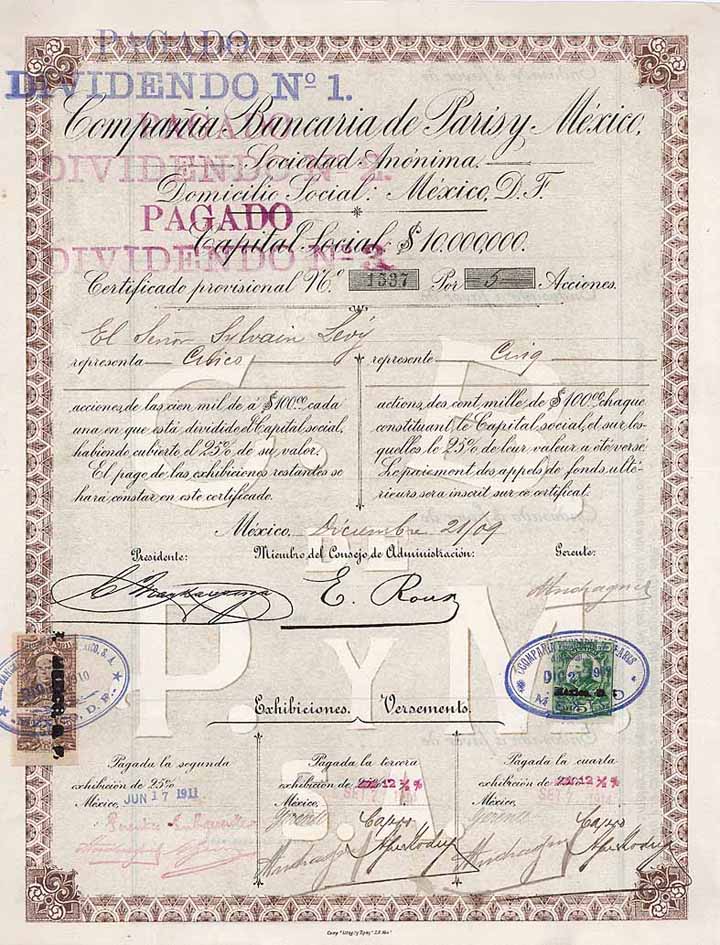 PAGADO
DIVIDENDO Nº 1.
Compañia Bancaria de Paris y México,
PAGADO
Sociedad Anónima.
DIVIDENDO Nº 2.
Domicilio Social: México, D. F.
PAGADO
Capital Social, $10.000,000.
DIVIDENDO Nº 3.
Certificado provisional N.º 1337 Por 5 Acciones.
El Señor Sylvain Lévy
representa
représente Cinq
acciones de las cien mil de á $100.00 cada
una en que está dividido el Capital social,
habiendo cubierto el 25% de su valor.
El pago de las exhibiciones restantes se
hará constar en este certificado.
actions des cent mille de $100.00 chaque
constituant le Capital social, et sur les-
quelles le 25% de leur valeur a été versé
Le paiement des appels de fonds ulté-
rieurs sera inscrit sur ce certificat.
México, Diciembre 21/09
Presidente: Miembro del Consejo de Administración: Gerente:
E. Roux
C. B.
P. Y M.
S. A.
Exhibiciones. Versements.
Pagada la segunda
exhibición de 25%
México, JUN 17 1911
Pagada la tercera
exhibición de 12 ½ %
México,
Gerente
Pagada la cuarta
exhibición de 12 ½ %
México,
Gerente